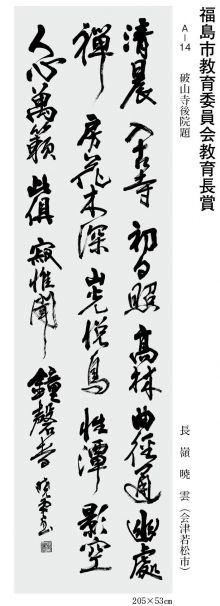 福島市教育委員会教育長賞
A－14　破山寺後院題
長嶺　暁雲（会津若松市）
清晨入古寺初日照高林曲径通幽處
禪房花木深山光悦鳥性潭影空
人心萬籟此俱寂惟聞鐘磬音 暁雲
205×53cm